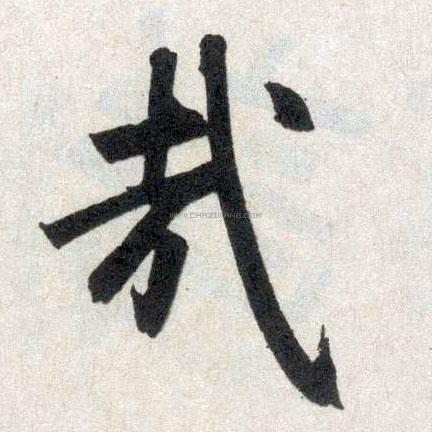 哉
WWW.CHAZIWANG.COM